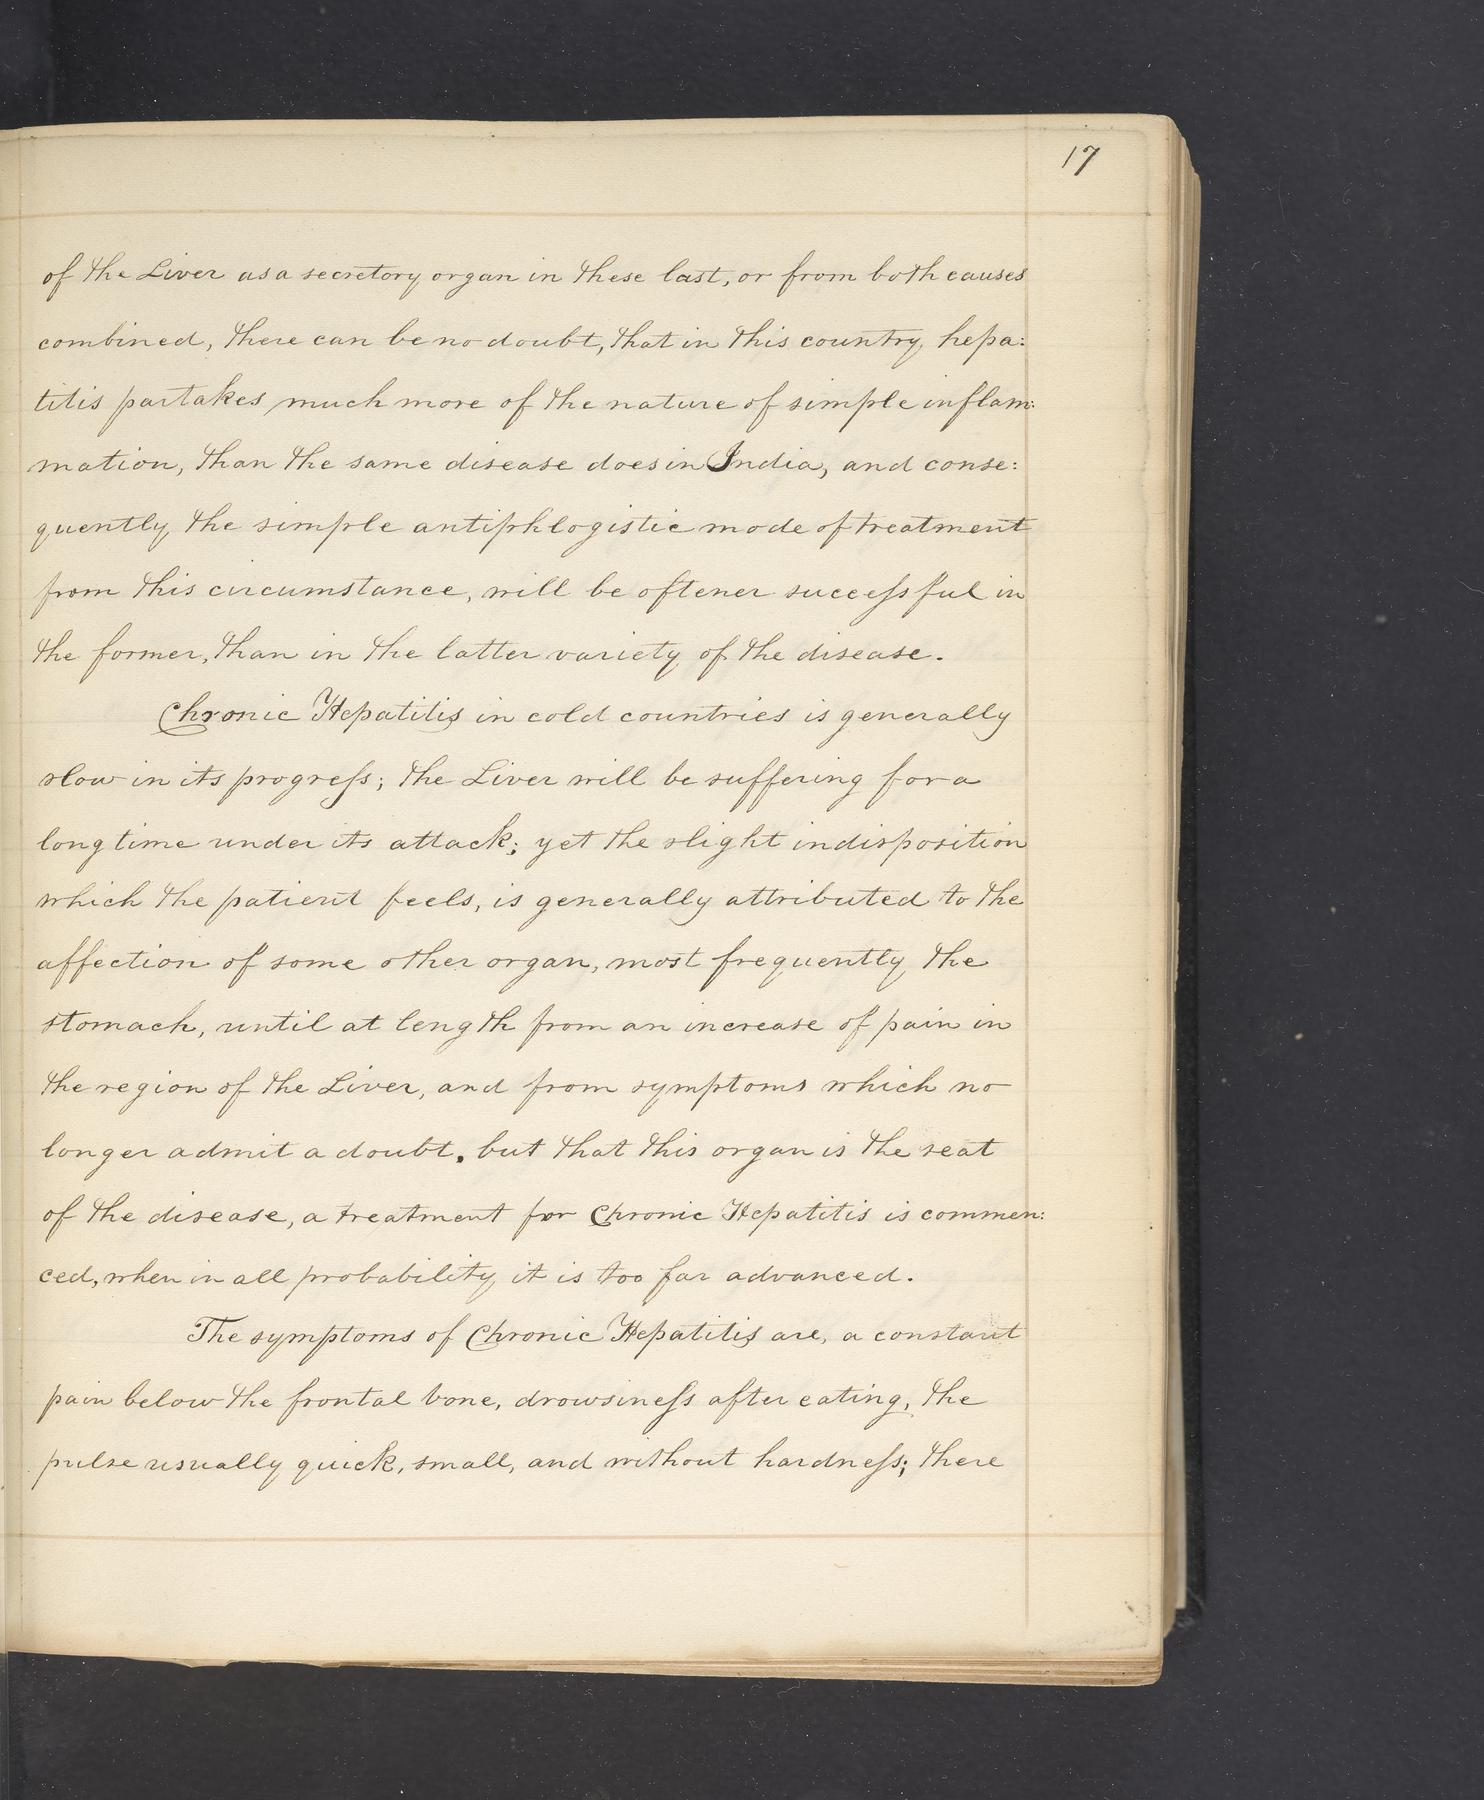 17
of the Liver as a secretory organ in these last, or from both causes
combined, there can be no doubt, that in this country, hepa:
titis partakes much more of the nature of simple inflam:
mation, than the same disease does in India, and conse:
quently, the simple antiphlogistic mode of treatment
from this circumstance, will be oftener succeſsful in
the former, than in the latter variety of the disease.
Chronic Hepatitis in cold countries is generally
slow in its progreſs; the Liver will be suffering for a
long time under its attack; yet the slight indisposition
which the patient feels, is generally attributed to the
affection of some other organ, most frequently, the
stomach, until at length from an increase of pain in
the region of the Liver, and from symptoms which no
longer admit a doubt, but that this organ is the seat
of the disease, a treatment for Chronic Hepatitis is commen:
ced, when in all probability, it is too far advanced.
The symptoms of Chronic Hepatitis are, a constant
pain below the frontal bone, drowsineſs after eating, the
pulse usually quick, small, and without hardneſs; there